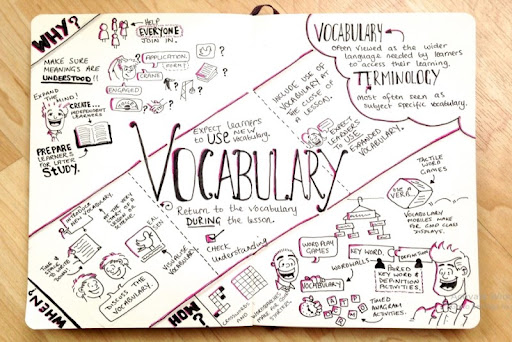 WHY?
HELP
EVERYONE
JOIN IN.
MAKE SURE
MEANINGS ARE
UNDERSTOOD!!
APPLICATION
CRANE
ENGAGED
EXPAND
THE MIND!
CREATE...
INDEPENDENT
LEARNERS
PREPARE
LEARNERS
FOR LATER
STUDY.
VOCABULARY
often viewed as the wider
language needed by learners
to access their learning.
TERMINOLOGY
most often seen as
subject specific vocabulary.
Expect learners
to USE new
vocabulary.
INCLUDE USE OF
VOCABULARY AT
THE CLOSE OF
A LESSON.
EXPECT
LEARNERS
TO USE
EXPANDED VOCABULARY.
VOCABULARY
Return to the vocabulary
DURING the lesson.
CHECK
Understanding
INTRODUCE
NEW VOCABULARY.
AT THE VERY
START OF A
LESSON OR
THEME.
TIME
TO WRITE
DOWN!
DISCUSS THE
VOCABULARY
VISUALISE
VOCABULARY
WHEN?
HOW?
CROSSWORDS
AND
WORDSEARCHES
MAKE
STARTERS.
WORD PLAY
GAMES
VOCABULARY
WORDWALLS
KEY WORD.
DEFINITION
PAIRED
KEY WORD &
DEFINITION
ACTIVITIES.
TIMED
ANAGRAM
ACTIVITIES.
TACTILE
WORD
GAMES
USE
VERB
VOCABULARY
MOBILES MAKE
FOR GOOD CLASS
DISPLAYS.